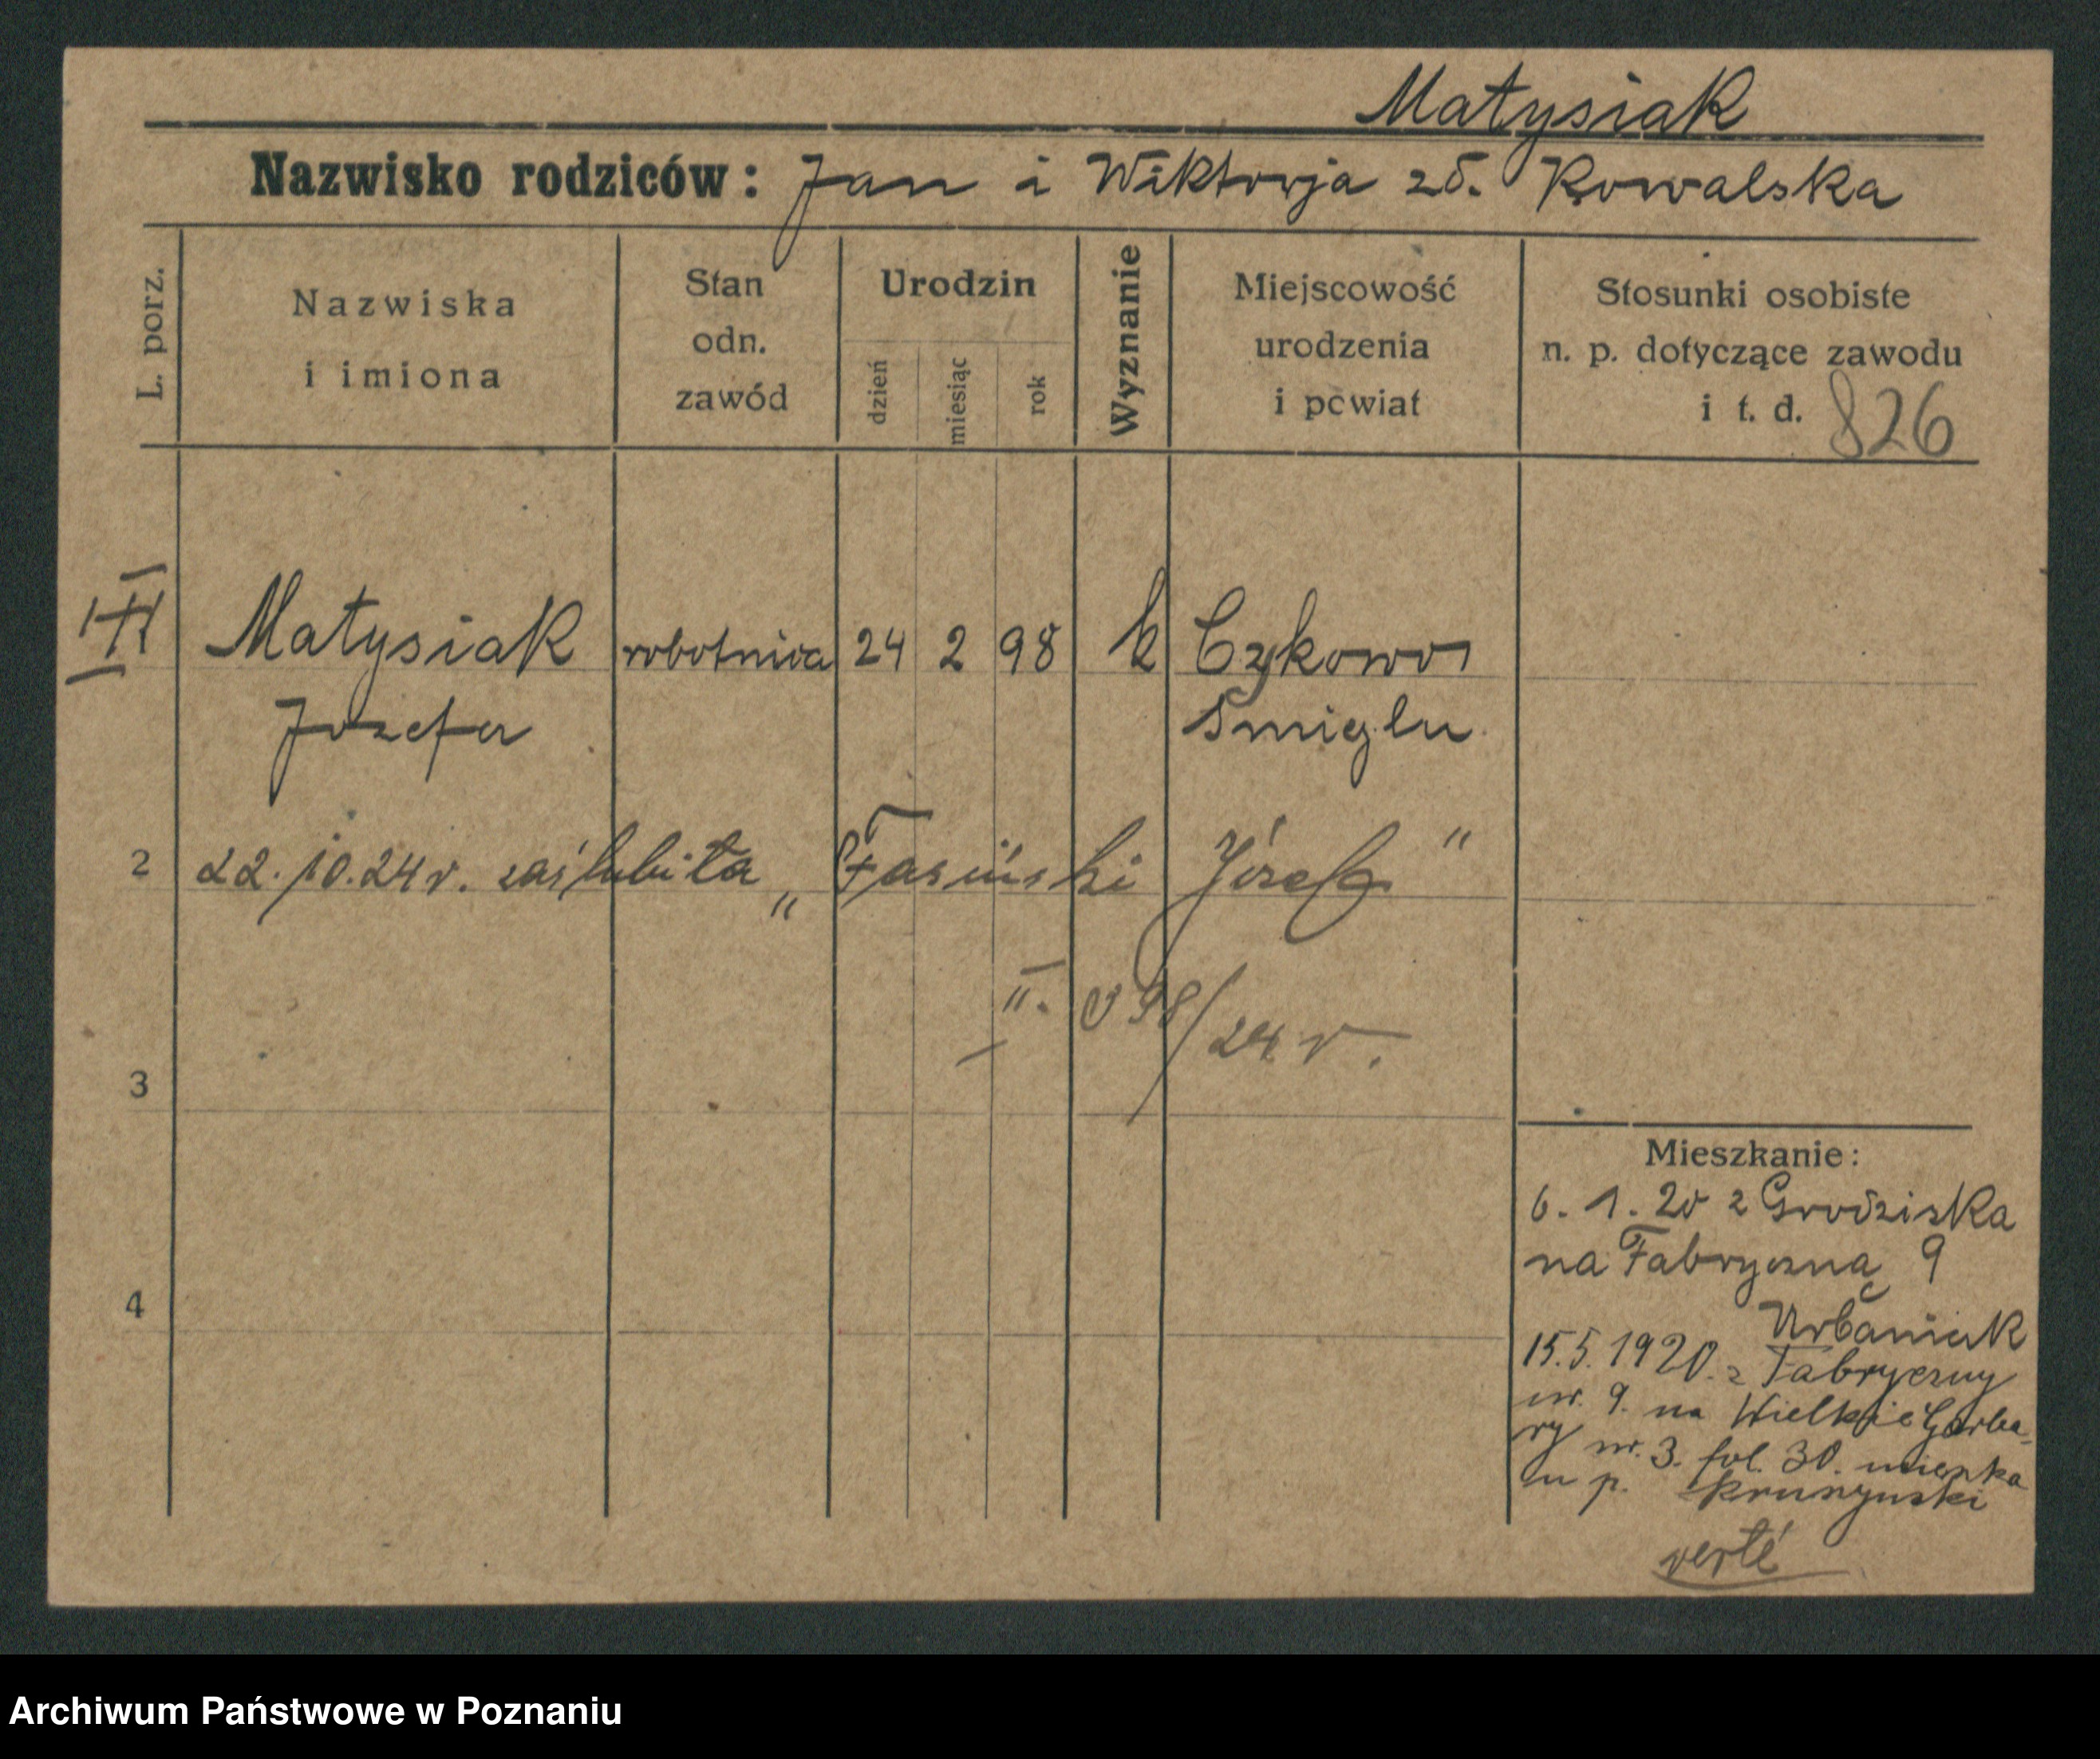 Matysiak
Nazwisko rodziców: Jan i Wiktorja zd. Kowalska
L. porz.
Nazwiska
i imiona
Stan
odn.
zawód
Urodzin
dzień
miesiąc
rok
Wyznanie
Miejscowość
urodzenia
i powiat
Stosunki osobiste
n. p. dotyczące zawodu
i t. d. 826
Matysiak robotnica 24 2 98 k Czykowo
Jozefa Smiglu
2 22.10.24r. zaślubiła „Fasiński Józef"
II. 898/24 r.
3
4
Mieszkanie:
6. 1. 20 z Grodziska
na Fabryczną 9
Urbaniak
15.5.1920. z Fabryczny
nr. 9. na Wielkie Garba-
ry nr. 3. fol. 30. mieszka
u p. Kruszynski
verte
Archiwum Państwowe w Poznaniu